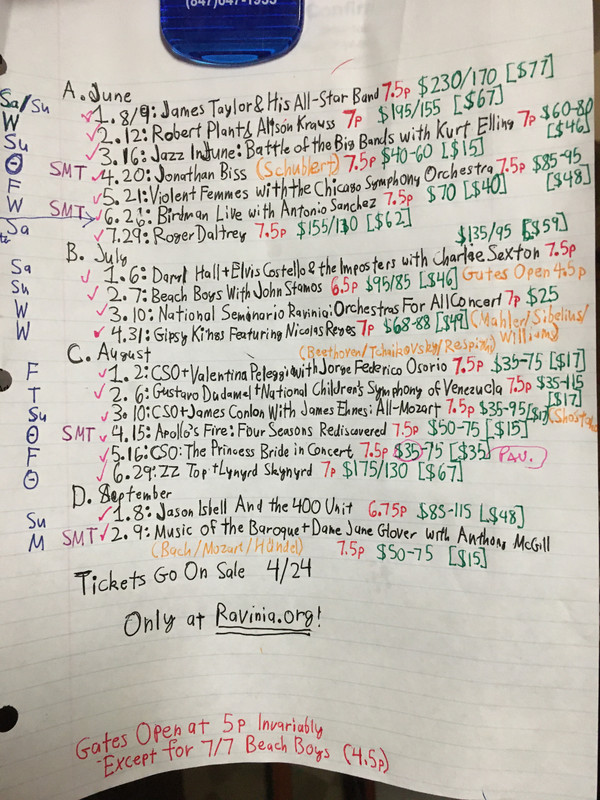 (847)647-1955
A. June
Sa/Su ✓1. 8/9: James Taylor & His All-Star Band 7.5p $230/170 [$77]
W ✓2. 12: Robert Plant & Alison Krauss 7p $195/155 [$67]
Su ✓3. 16: Jazz InJune: Battle of the Big Bands with Kurt Elling 7p $60-80 [$46]
Θ SMT ✓4. 20: Jonathan Biss (Schubert) 7.5p $40-60 [$15]
F ✓5. 21: Violent Femmes with the Chicago Symphony Orchestra 7.5p $85-95 [$48]
W SMT ✓6. 26: Birdman Live with Antonio Sanchez 7.5p $70 [$40]
Sa ✓7. 29: Roger Daltrey 7.5p $155/130 [$62]
B. July $135/95 [$59]
Sa ✓1. 6: Daryl Hall + Elvis Costello & the Imposters with Charlie Sexton 7.5p
Su ✓2. 7: Beach Boys With John Stamos 6.5p $95/85 [$46] Gates Open 4.5p
W ✓3. 10: National Seminario Ravinia: Orchestras For All Concert 7p $25
W ✓4. 31: Gipsy Kings Featuring Nicolas Reyes 7p $68-88 [$49] (Mahler/Sibelius/Williams)
C. August (Beethoven/Tchaikovsky/Respighi)
F ✓1. 2: CSO + Valentina Peleggi with Jorge Federico Osorio 7.5p $35-75 [$17]
T ✓2. 6: Gustavo Dudamel + National Children's Symphony of Venezuela 7.5p $35-115 [$17]
Su ✓3. 10: CSO + James Conlon With James Ehnes: All-Mozart 7.5p $35-95 [$17]
Θ SMT ✓4. 15: Apollo's Fire: Four Seasons Rediscovered 7.5p $50-75 [$15]
F ✓5. 16: CSO: The Princess Bride in Concert 7.5p $35-75 [$35] PAV.
Θ ✓6. 29: ZZ Top + Lynyrd Skynyrd 7p $175/130 [$67]
D. September
Su ✓1. 8: Jason Isbell And the 400 Unit 6.75p $85-115 [$48]
M SMT ✓2. 9: Music of the Baroque + Dame Jane Glover with Anthony McGill
(Bach/Mozart/Händel) 7.5p $50-75 [$15]
Tickets Go On Sale 4/24
Only at Ravinia.org!
Gates Open at 5p Invariably
-Except for 7/7 Beach Boys (4.5p)